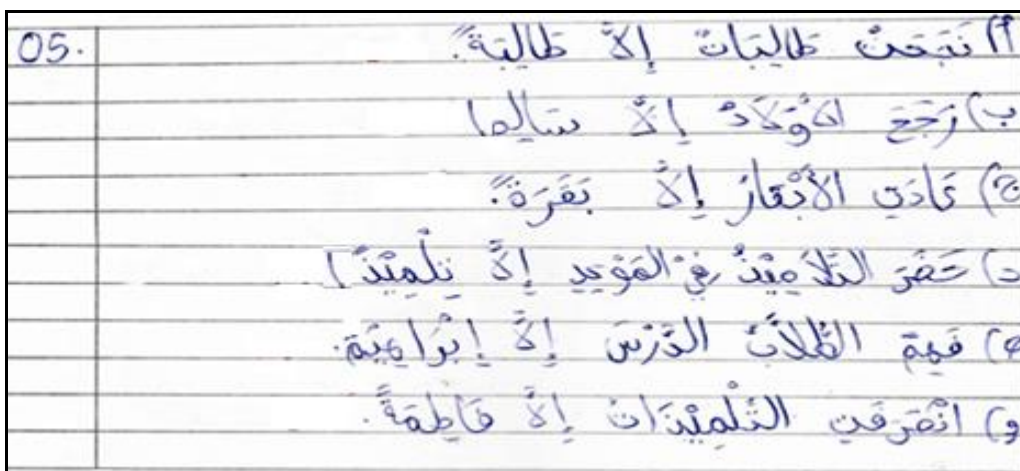 05. أ) نَجَحَتْ طَالِبَاتٌ إِلاَّ طَالِبَةً.
ب) رَجَعَ الأَوْلَادُ إِلاَّ سَالِمًا
ج) عَادَتِ الأَبْقَارُ إِلاَّ بَقَرَةً.
د) حَضَرَ التَّلاَمِيْذُ فِيْ المَوْعِدِ إِلاَّ تِلْمِيْذًا
ه) فَهِمَ الطُّلاَّبُ الدَّرْسَ إِلاَّ إِبْرَاهِيْمَ.
و) انْصَرَفَتِ التِّلْمِيْذَاتُ إِلاَّ فَاطِمَةً.